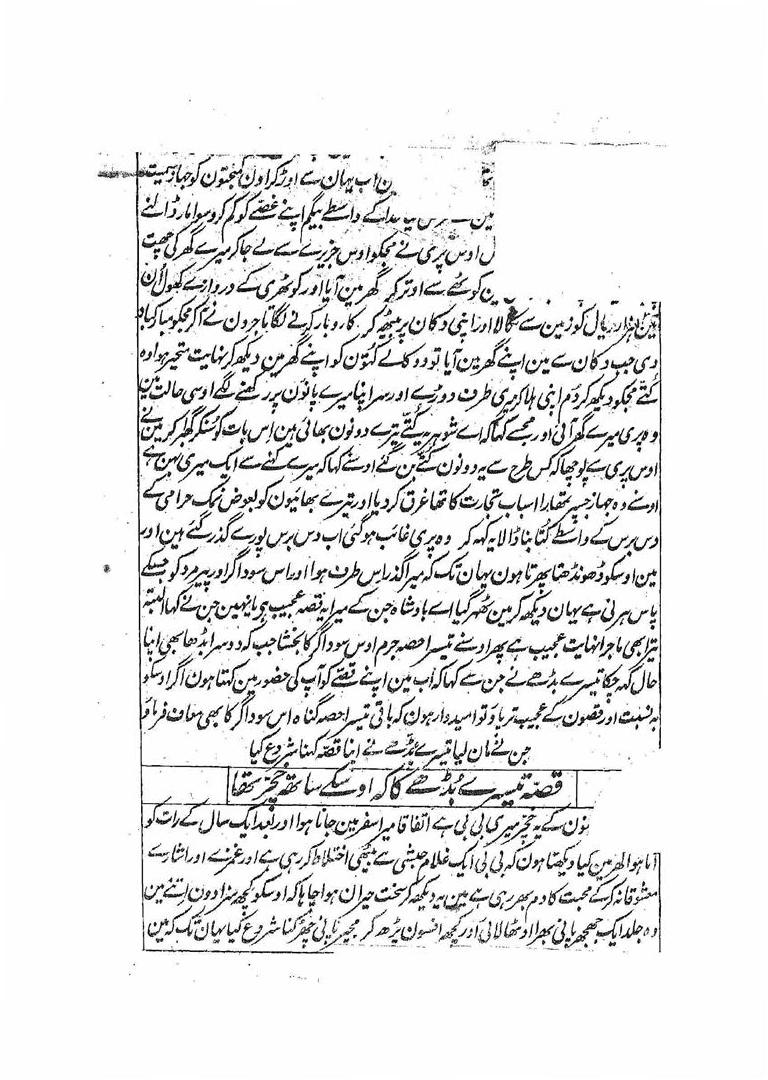 ن اب یہان سے اوڑ کر اون کمبختون کو جہاز سمیت
کے واسطے بیگم اپنے غصّے کو کم کرو سوا مار ڈالنے
اوس پری نے مجکو اوس جزیرے سے لے جا کر میرے گھر کی چھت
ین کوٹھے سے اوتر کر گھر مین آیا اور کوٹھری کے دروازے کھول اُن
تین ہزار ریال کو زمین سے نکالا اور اپنی دکان پر بیٹھ کر کاروبار کرنے لگا تاجرون نے آکر مجکو مبارکباد
دی جب دکان سے مین اپنے گھر مین آیا تو دو کالے کتّون کو اپنے گھر مین دیکھ کر نہایت متحیر ہوا وہ
کتّے مجکو دیکھ کر دُم اپنی ہلا کر میری طرف دوڑے اور سر اپنا میرے پانون پر رکھنے لگے اوسی حالت مین
وہ پری میرے گھر آئی اور مجھسے کہا کہ اے شوہر یہ کتّے تیرے دونون بھائی ہین اس بات کو سُنکر گھبرا کر مین نے
اوس پری سے پوچھا کہ کس طرح سے یہ دونون کتّے بن گئے اوسنے کہا کہ میرے کہنے سے ایک میری بہن ہے
اوسنے وہ جہاز جسپر تمھارا اسباب تجارت کا تھا غرق کر دیا اور تیرے بھائیون کو بعوض نمک حرامی کے
دس برس کے واسطے کُتّا بنا ڈالا یہ کہہ کر وہ پری غائب ہو گئی اب دس برس پورے گذر گئے ہین اور
مین اوسکو ڈھونڈھتا پھرتا ہون یہان تک کہ میرا گذر اس طرف ہوا اور اس سوداگر اور پیر مرد کو جسکے
پاس ہرنی ہے یہان دیکھ کر مین ٹھہر گیا اے بادشاہ جن کے میرا یہ قصہ عجیب ہی یا نہین جن نے کہا البتہ
تیرا بھی ماجرا نہایت عجیب ہے پھر اوسنے تیسرا حصہ جرم اوس سوداگر کا بخشا جب کہ دوسرا بڈھا بھی اپنا
حال کہہ چکا تیسرے بڈھے نے جن سے کہا کہ اب مین اپنے قصّے کو آپ کی حضور مین کہتا ہون اگر اوسکو
بہ نسبت اور قصون کے عجیب تر پاؤ تو امیدوار ہون کہ باقی تیسرا حصہ گناہ اس سوداگر کا بھی معاف فرماؤ
جن نے مان لیا تیسرے بڈھے نے اپنا قصّہ کہنا شروع کیا
قصّہ تیسرے بُڈھے کا کہ اوسکے ساتھ خچر تھا
ہون کے یہ خچر میری بی بی ہے اتفاقاً میرا سفر مین جانا ہوا اور بعد ایک سال کے رات کو
آنا ہوا گھر مین کیا دیکھتا ہون کہ بی بی ایک غلام حبشی سے بیٹھی اختلاط کر رہی ہے اور غمزے اور اشارے
معشوقانہ کر کے محبت کا دم بھر رہی ہے مین یہ دیکھ کر سخت حیران ہوا چاہا کہ اوسکو کچھ سزا دون اتنے مین
وہ جلد ایک جھجھر پانی بھرا اوٹھا لائی اور کچھ افسون پڑھ کر مجھپر پانی چھڑکنا شروع کیا یہان تک کہ مین